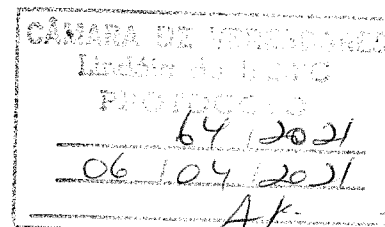 CÂMARA DE VEREADORES
PROTOCOLO
64 / 2021
06 / 04 / 2021
AK.